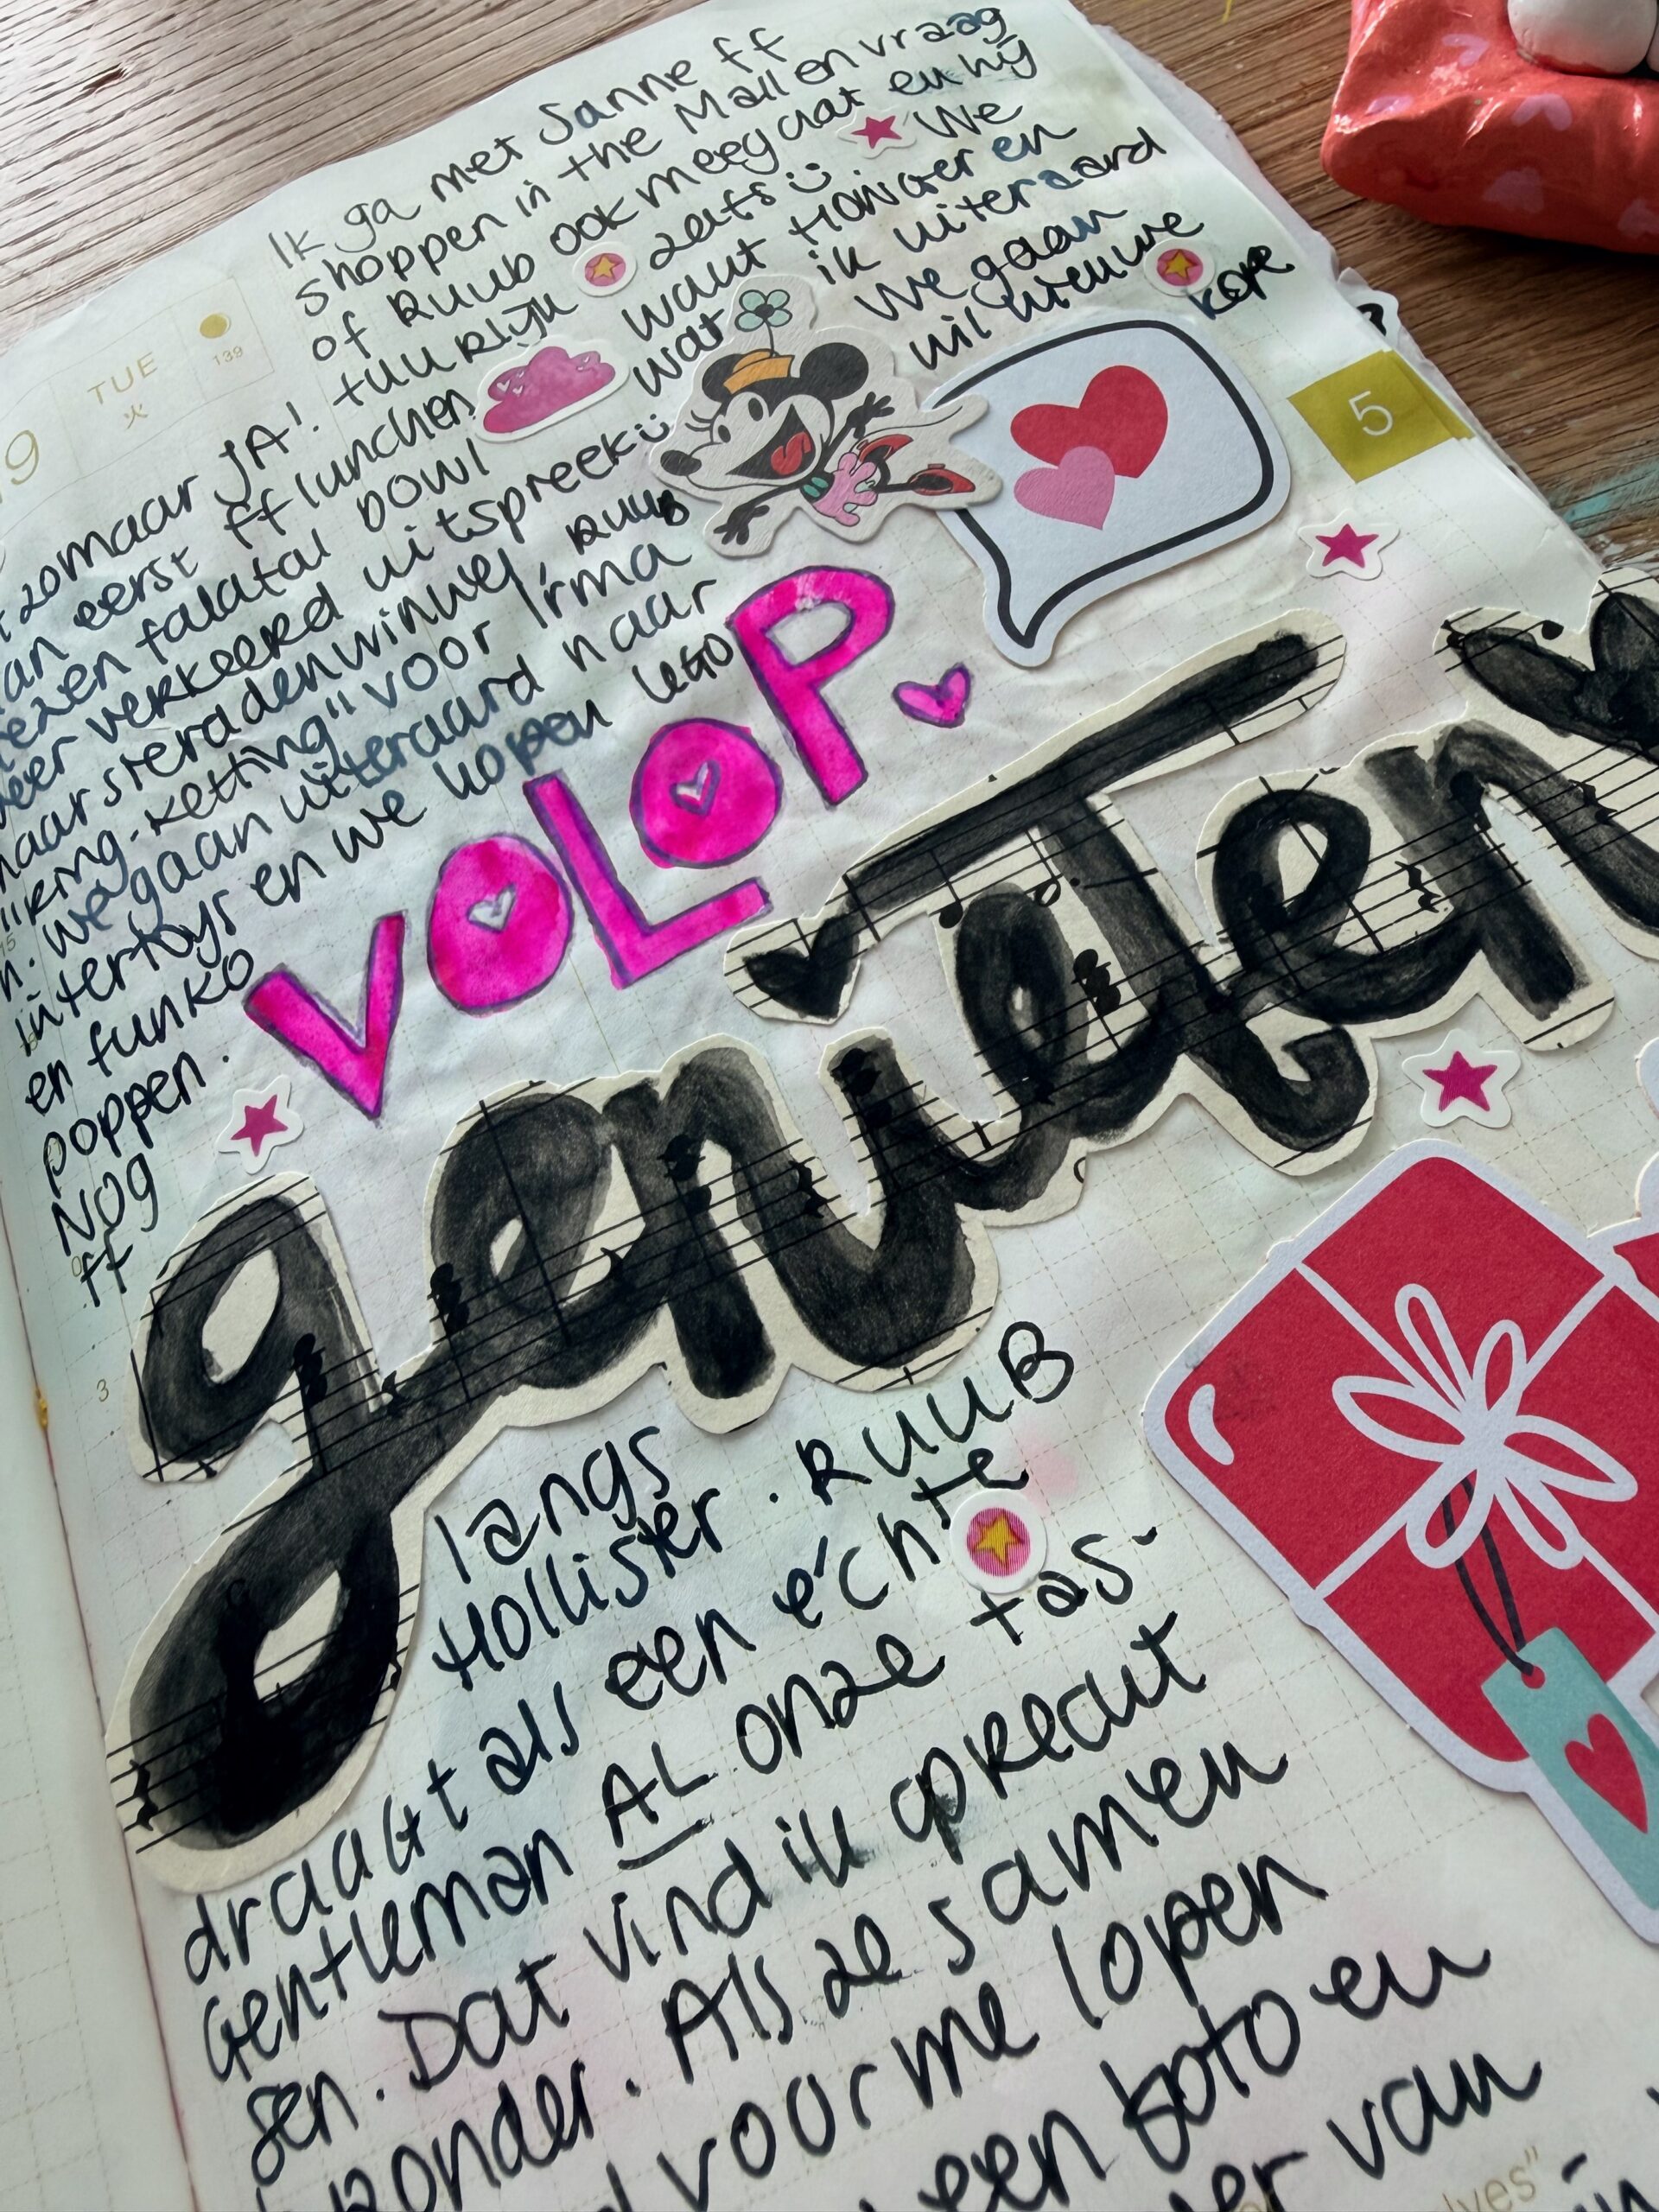 19
TUE
火
139
5
Ik ga met Sanne ff
shoppen in the Mall en vraag
of Ruub ook meegaat en hij
zegt zomaar JA! tuurlijk zelfs :) We
gaan eerst ff lunchen want Howier en
falafal bowl wat ik uiteraard
weer verkeerd uitspreek :) We gaan
naar sieradenwinkel Ruub wil nieuwe
"kring-ketting" voor Irma kope
n. We gaan uiteraard naar
intertoys en we kopen LEGO
en funko
poppen.
Nog
ff
VOLOP
genieten
3
langs
Hollister. RUUB
draagt als een échte
Gentleman AL onze tas-
sen. Dat vind ik oprecut
bijzonder. Als ze samen
voor me lopen
een foto en
van